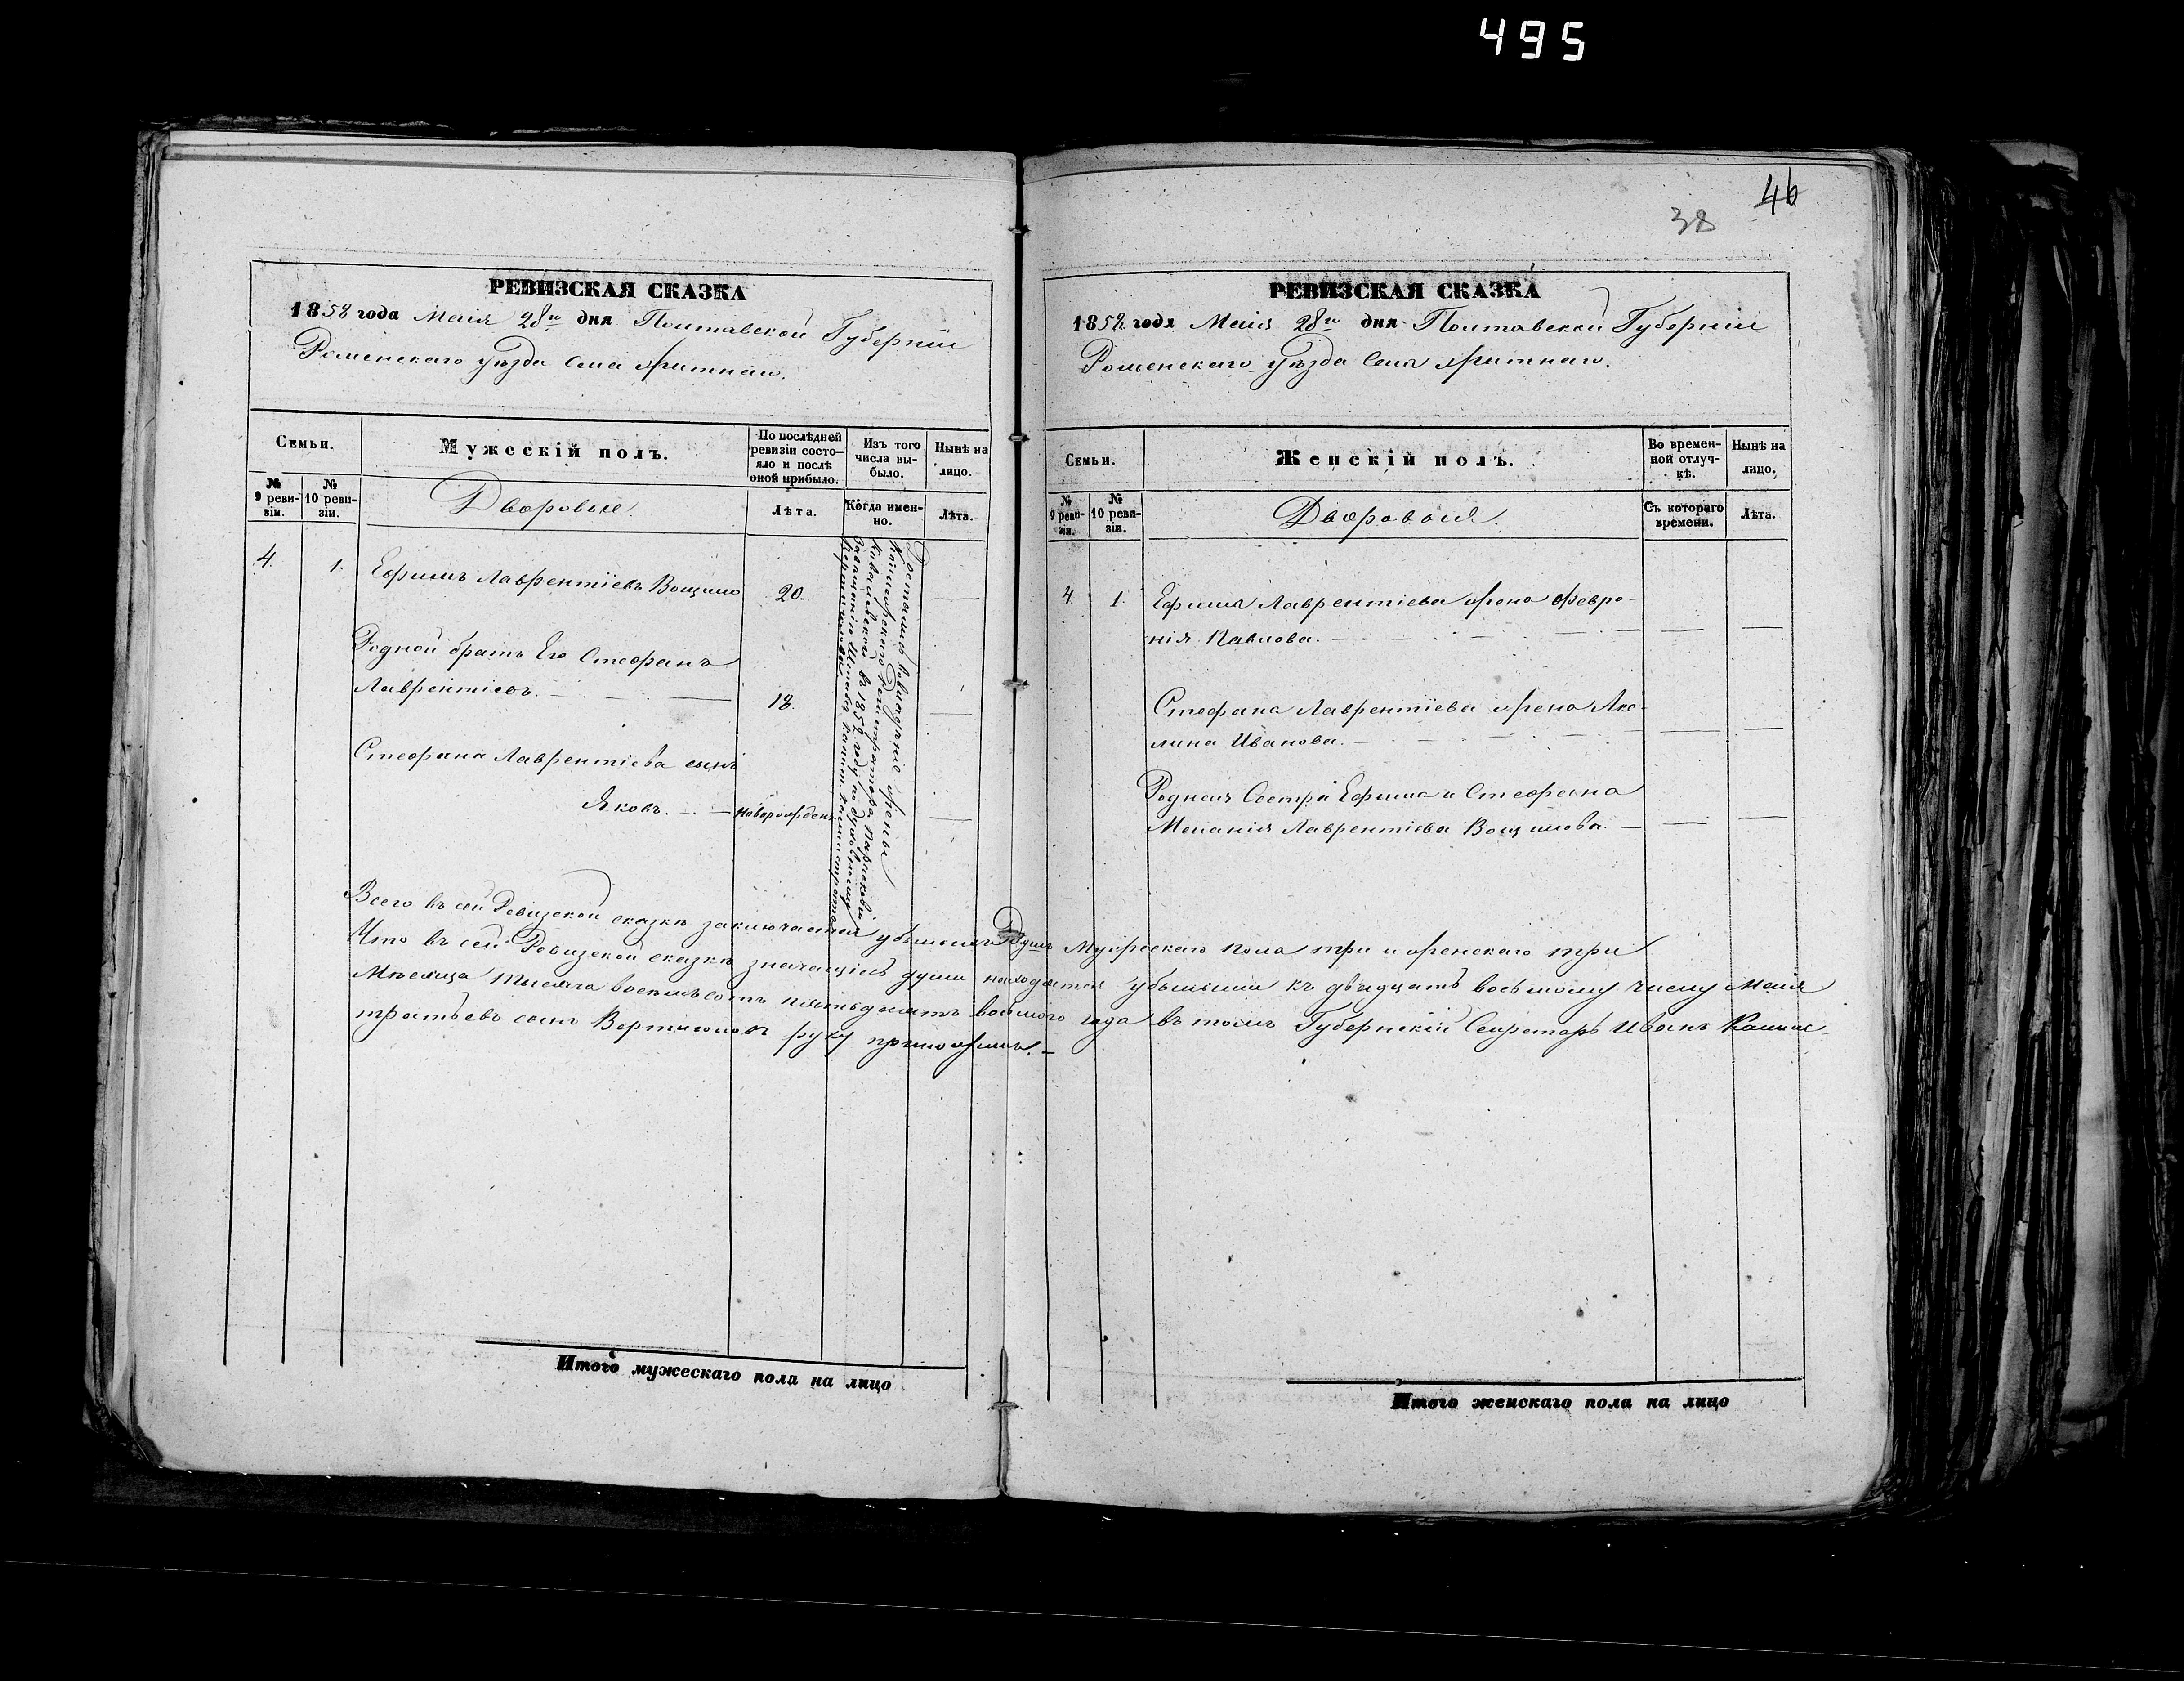 495
46
38
РЕВИЗСКАЯ СКАЗКА
1858 года Маія 28го дня Полтавской Губерніи
Роменскаго уѣзда Села Житнаго.
Семьи.
Мужескій полъ.
По послѣдней ревизіи состояло и послѣ оной прибыло.
Изъ того числа выбыло.
Нынѣ на лицо.
№ 9 ревизіи.
№ 10 ревизіи.
Дворовые
Лѣта.
Когда именно.
Лѣта.
4. 1. Ефимъ Лаврентіевъ Вощило 20. —
Родной братъ Его Стефанъ
Лаврентіевъ. — 18. —
Стефана Лаврентіева сынъ
Яковъ. — новорожден. —
Достались во владѣніе жены
Коллежскаго Регистратора
въ 1852 году по духовному
Завѣщанію
РЕВИЗСКАЯ СКАЗКА
1858 года Маія 28го дня Полтавской Губерніи
Роменскаго уѣзда Села Житнаго.
Семьи.
Женскій полъ.
Во временной отлучкѣ.
Нынѣ на лицо.
№ 9 ревизіи.
№ 10 ревизіи.
Дворовыя.
Съ котораго времени.
Лѣта.
4. 1. Ефима Лаврентіева жена Февро-
нія Павлова. — — —
Стефана Лаврентіева жена Аку-
лина Иванова. — — —
Родная Сестра Ефима и Стефана
Меланія Лаврентіева Вощилова. — — —
Всего въ сей Ревизской сказкѣ заключается убылыхъ Душъ Мужескаго пола три и женскаго три
Что въ сей Ревизской сказкѣ значащіесь души находятся убылыми къ двадцать восьмому числу Маія
Мѣсяца тысяча восемьсотъ пятьдесятъ восьмого года въ томъ Губернскій Секретарь Иванъ Калис-
тратьевъ сынъ руку приложилъ. —
Итого мужескаго пола на лицо
Итого женскаго пола на лицо